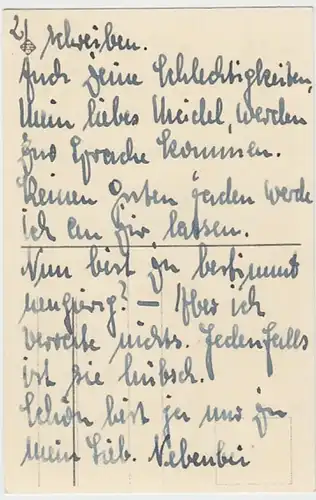 2/ schreiben.
Auch Deine Schlechtigkeiten,
Mein liebes Meidel, werden
zur Sprache kommen.
Keinen guten Faden werde
ich an Dir lassen.
Nun bist Du bestimmt
neugirig? — Aber ich
verrate nichts. Jedenfalls
ist sie hübsch.
Schön bist ja nur Du
Mein Lieb. Nebenbei